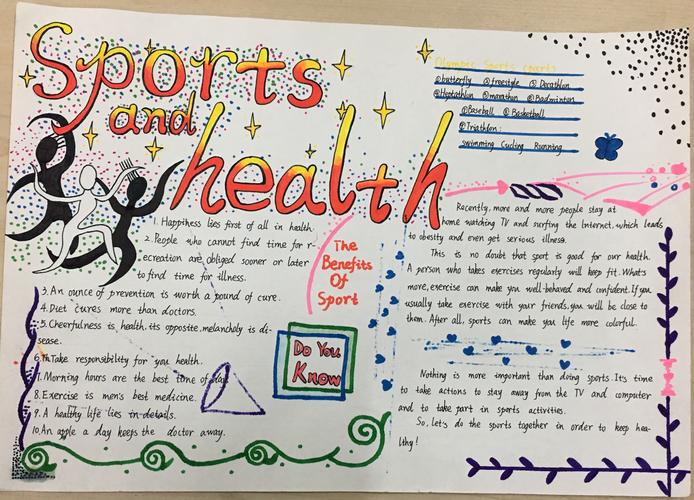 Sports
and
health
Olympic Sports events
①butterfly ②freestyle ③
④ ⑤marathon ⑥Badminton
⑦Baseball ⑧Basketball
⑨Triathlon:
swimming Cycling Running
1. Happiness lies first of all in health.
2. People who cannot find time for r-
ecreation are obliged sooner or later
to find time for illness.
3. An ounce of prevention is worth a pound of cure.
4. Diet cures more than doctors.
5. Cheerfulness is health, its opposite, melancholy is di-
sease.
6. Take responsibility for you health.
7. Morning hours are the best time of
8. Exercise is men's best medicine.
9. A healthy life lies in details.
10. An apple a day keeps the doctor away.
The
Benefits
Of
Sport
Do You
Know
Recently, more and more people stay at
home watching TV and surfing the Internet, which leads
to obesity and even get serious illness.
This is no doubt that sport is good for our health.
A person who takes exercises regularly will keep fit. What's
more, exercise can make you well-behaved and confident. If you
usually take exercise with your friends, you will be close to
them. After all, sports can make you life more colorful.
Nothing is more important than doing sports. Its time
to take actions to stay away from the TV and computer
and to take part in sports activities.
So, let's do the sports together in order to keep hea-
lthy!